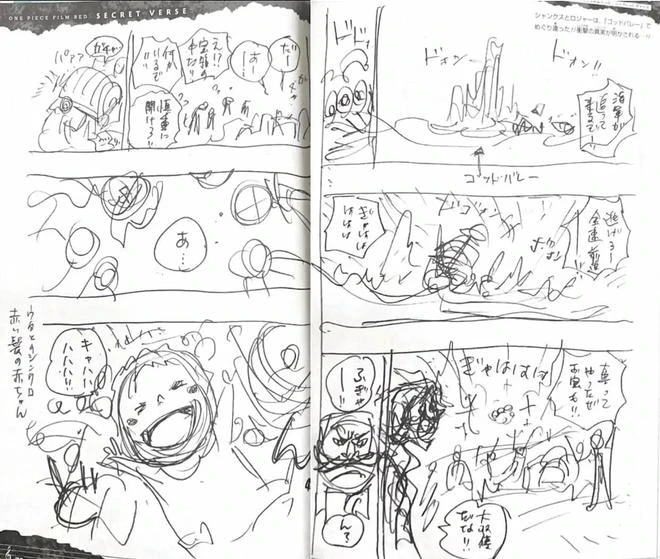 シャンクスとロジャーは、「ゴッドバレー」で
めぐり逢った!!衝撃の真実が明かされる…!!
海軍が
追って
来るぞ!!
ドォン!!
ドォン
ゴッド・バレー
逃げろー
全速前進
ドゴォン
ぎゃはは
ははは
奪って
やったぜ
お宝も!!
ぎゃはははは
大収穫
だな!!
ふぎゃ
ー!!
ん?
ONE PIECE FILM RED SECRET VERSE
だー
あー…
え!?
宝箱の
中だ!!
何か
いるぞ
慎重に
開けろ!!
ガチャ
パアァ
あ…
キャハハ
ハハハ!!
ウタとシンクロ
赤い髪の赤ちゃん